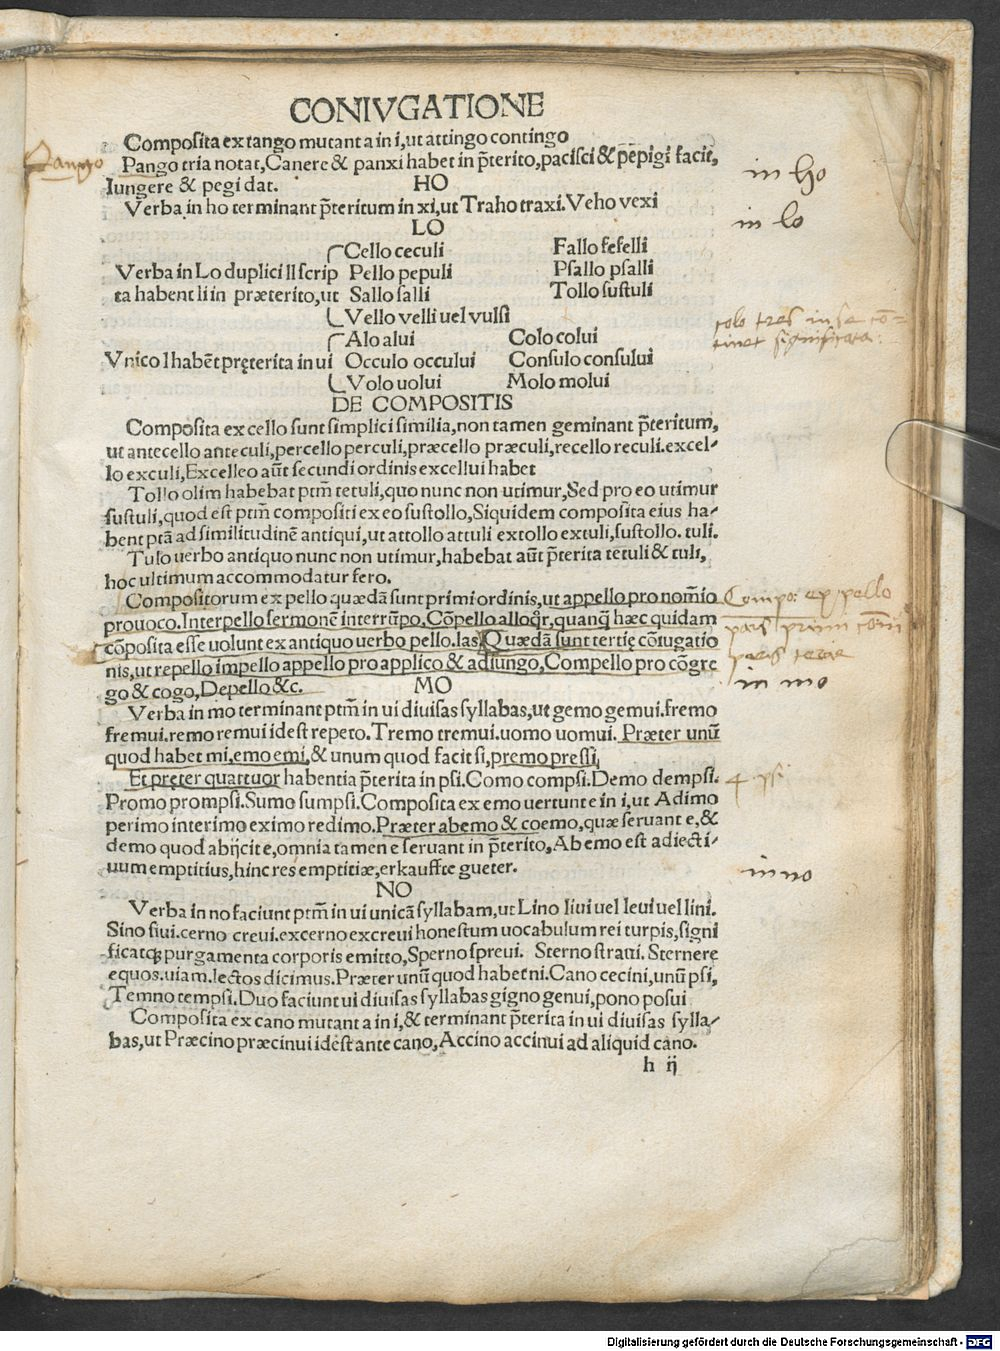 CONIVGATIONE
Composita ex tango mutant a in i, ut attingo contingo
Pango
Pango tria notat, Canere & panxi habet in p̃terito, pacisci & pepigi facit,
Iungere & pegi dat.
HO
in ho
Verba in ho terminant p̃teritum in xi, ut Traho traxi. Veho vexi
LO
in lo
Cello ceculi Fallo fefelli
Verba in Lo duplici ll scrip Pello pepuli Psallo psalli
ta habent li in præterito, ut Sallo salli Tollo sustuli
Vello velli uel vulsi
colo tres in se cō-
tinet significata.
Alo alui Colo colui
Vnico l habēt pręterita in ui Occulo occului Consulo consului
Volo uolui Molo molui
DE COMPOSITIS
Composita ex cello sunt simplici similia, non tamen geminant p̃teritum,
ut antecello anteculi, percello perculi, præcello præculi, recello reculi. excel-
lo exculi, Excelleo aūt secundi ordinis excellui habet
Tollo olim habebat ptm̃ tetuli, quo nunc non utimur, Sed pro eo utimur
sustuli, quod est ptm̃ compositi ex eo sustollo, Siquidem composita eius ha-
bent ptã ad similitudinē antiqui, ut attollo attuli extollo extuli, sustollo. tuli.
Tulo uerbo antiquo nunc non utimur, habebat aūt p̃terita tetuli & tuli,
hoc ultimum accommodatur fero.
Compositorum ex pello quædã sunt primi ordinis, ut appello pro nom̃io
prouoco. Interpello sermonē interrūpo. Cõpello alloqr̃, quanq̃ hæc quidam
cõposita esse uolunt ex antiquo uerbo pello. las. Quædã sunt tertię cõiugatio
nis, ut repello impello appello pro applico & adiungo, Compello pro cõgre
go & cogo, Depello &c.
Compo: ex pello
pars primi
MO
in mo
Verba in mo terminant ptm̃ in ui diuisas syllabas, ut gemo gemui. fremo
fremui. remo remui idest repeto. Tremo tremui. uomo uomui. Præter unũ
quod habet mi, emo emi, & unum quod facit si, premo pressi,
Et pręter quattuor habentia p̃terita in psi. Como compsi. Demo dempsi.
4 psi
Promo prompsi. Sumo sumpsi. Composita ex emo uertunt e in i, ut Adimo
perimo interimo eximo redimo. Præter abemo & coemo, quæ seruant e, &
demo quod abijcit e, omnia tamen e seruant in p̃terito, Ab emo est adiecti-
uum emptitius, hinc res emptitiæ, erkauffte gueter.
NO
in no
Verba in no faciunt ptm̃ in ui unicã syllabam, ut Lino liui uel leui uel lini.
Sino siui. cerno creui. excerno excreui honestum uocabulum rei turpis, signi
ficatq; purgamenta corporis emitto, Sperno spreui. Sterno straui. Sternere
equos. uiam. lectos dicimus. Præter unũ quod habet ni. Cano cecini, unũ psi,
Temno tempsi. Duo faciunt ui diuisas syllabas gigno genui, pono posui
Composita ex cano mutant a in i, & terminant p̃terita in ui diuisas sylla-
bas, ut Præcino præcinui idest ante cano, Accino accinui ad aliquid cano.
h ij
Digitalisierung gefördert durch die Deutsche Forschungsgemeinschaft - DFG